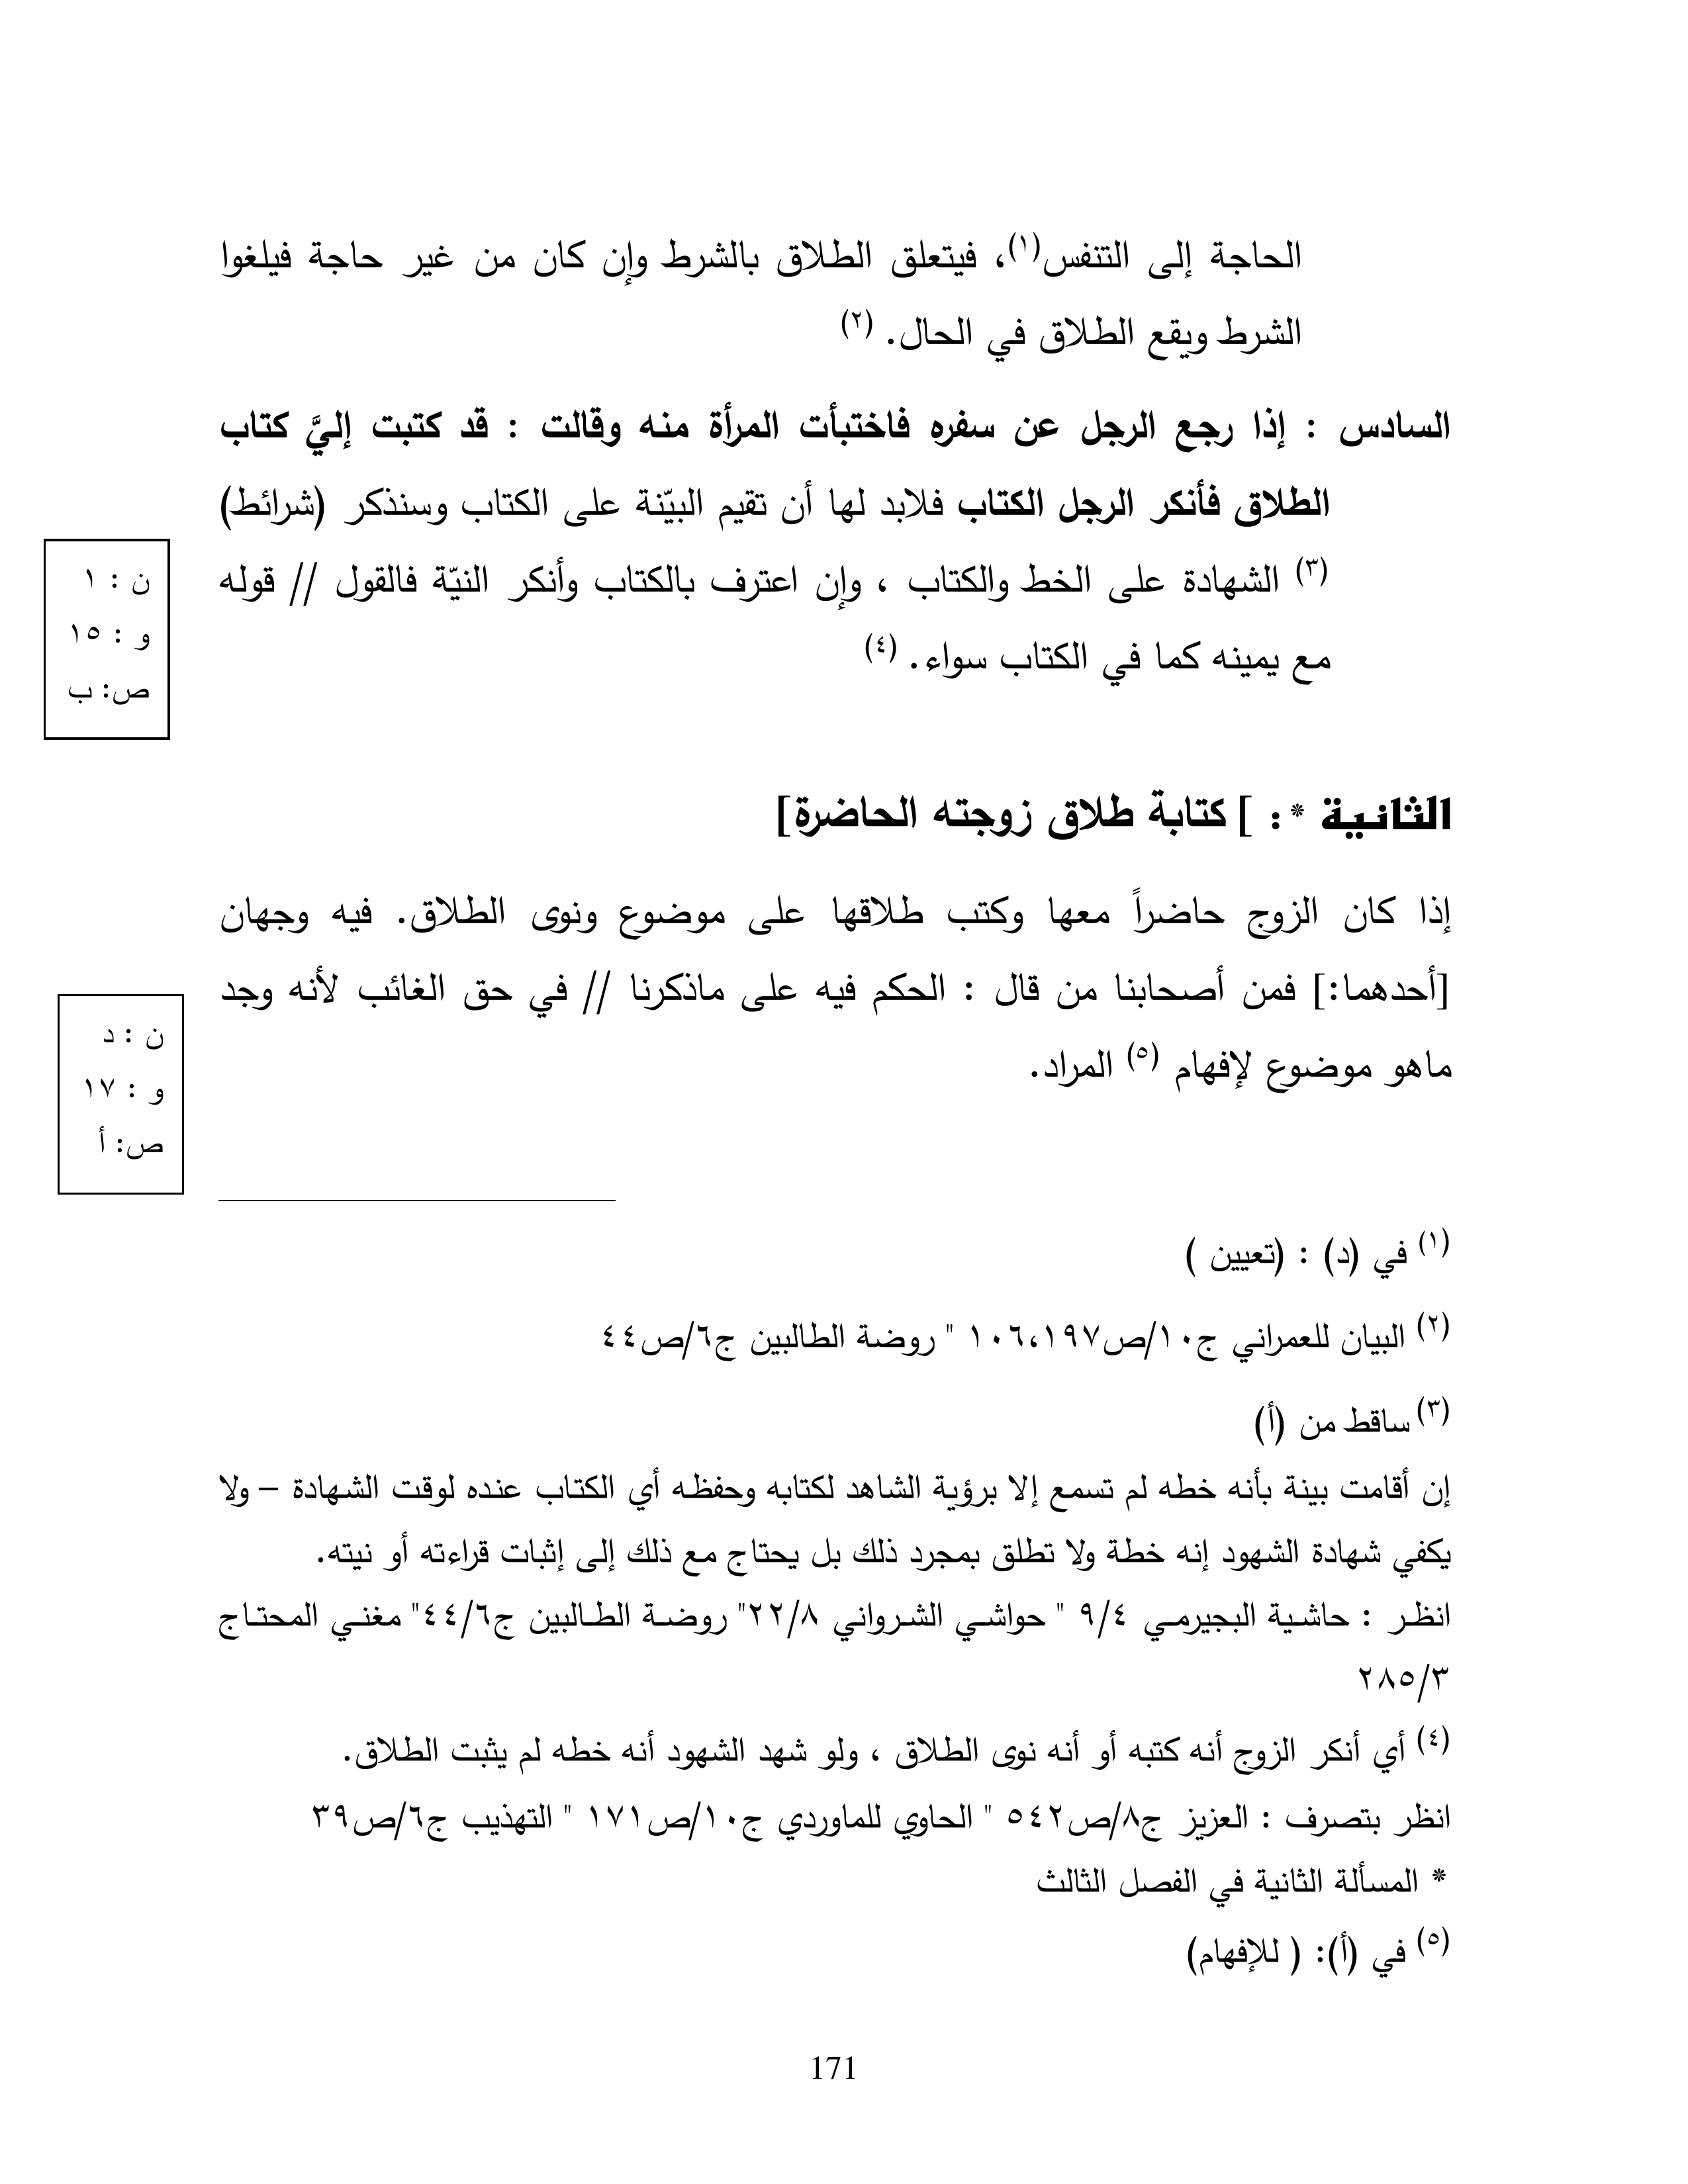 الحاجة إلى التنفس(١)، فيتعلق الطلاق بالشرط وإن كان من غير حاجة فيلغوا
الشرط ويقع الطلاق في الحال. (٢)
السادس : إذا رجع الرجل عن سفره فاختبأت المرأة منه وقالت : قد كتبت إليَّ كتاب
الطلاق فأنكر الرجل الكتاب فلابد لها أن تقيم البيّنة على الكتاب وسنذكر (شرائط)
(٣) الشهادة على الخط والكتاب ، وإن اعترف بالكتاب وأنكر النيّة فالقول // قوله
مع يمينه كما في الكتاب سواء. (٤)
ن : ١
و : ١٥
ص: ب
الثانية *: [ كتابة طلاق زوجته الحاضرة]
إذا كان الزوج حاضراً معها وكتب طلاقها على موضوع ونوى الطلاق. فيه وجهان
[أحدهما:] فمن أصحابنا من قال : الحكم فيه على ماذكرنا // في حق الغائب لأنه وجد
ماهو موضوع لإفهام (٥) المراد.
ن : د
و : ١٧
ص: أ
(١) في (د) : (تعيين )
(٢) البيان للعمراني ج١٠/ص١٠٦،١٩٧ " روضة الطالبين ج٦/ص٤٤
(٣) ساقط من (أ)
إن أقامت بينة بأنه خطه لم تسمع إلا برؤية الشاهد لكتابه وحفظه أي الكتاب عنده لوقت الشهادة – ولا
يكفي شهادة الشهود إنه خطة ولا تطلق بمجرد ذلك بل يحتاج مع ذلك إلى إثبات قراءته أو نيته.
انظر : حاشية البجيرمي ٩/٤ " حواشي الشرواني ٢٢/٨" روضة الطالبين ج٤٤/٦" مغني المحتاج
٢٨٥/٣
(٤) أي أنكر الزوج أنه كتبه أو أنه نوى الطلاق ، ولو شهد الشهود أنه خطه لم يثبت الطلاق.
انظر بتصرف : العزيز ج٨/ص٥٤٢ " الحاوي للماوردي ج١٠/ص١٧١ " التهذيب ج٦/ص٣٩
* المسألة الثانية في الفصل الثالث
(٥) في (أ): ( للإفهام)
171